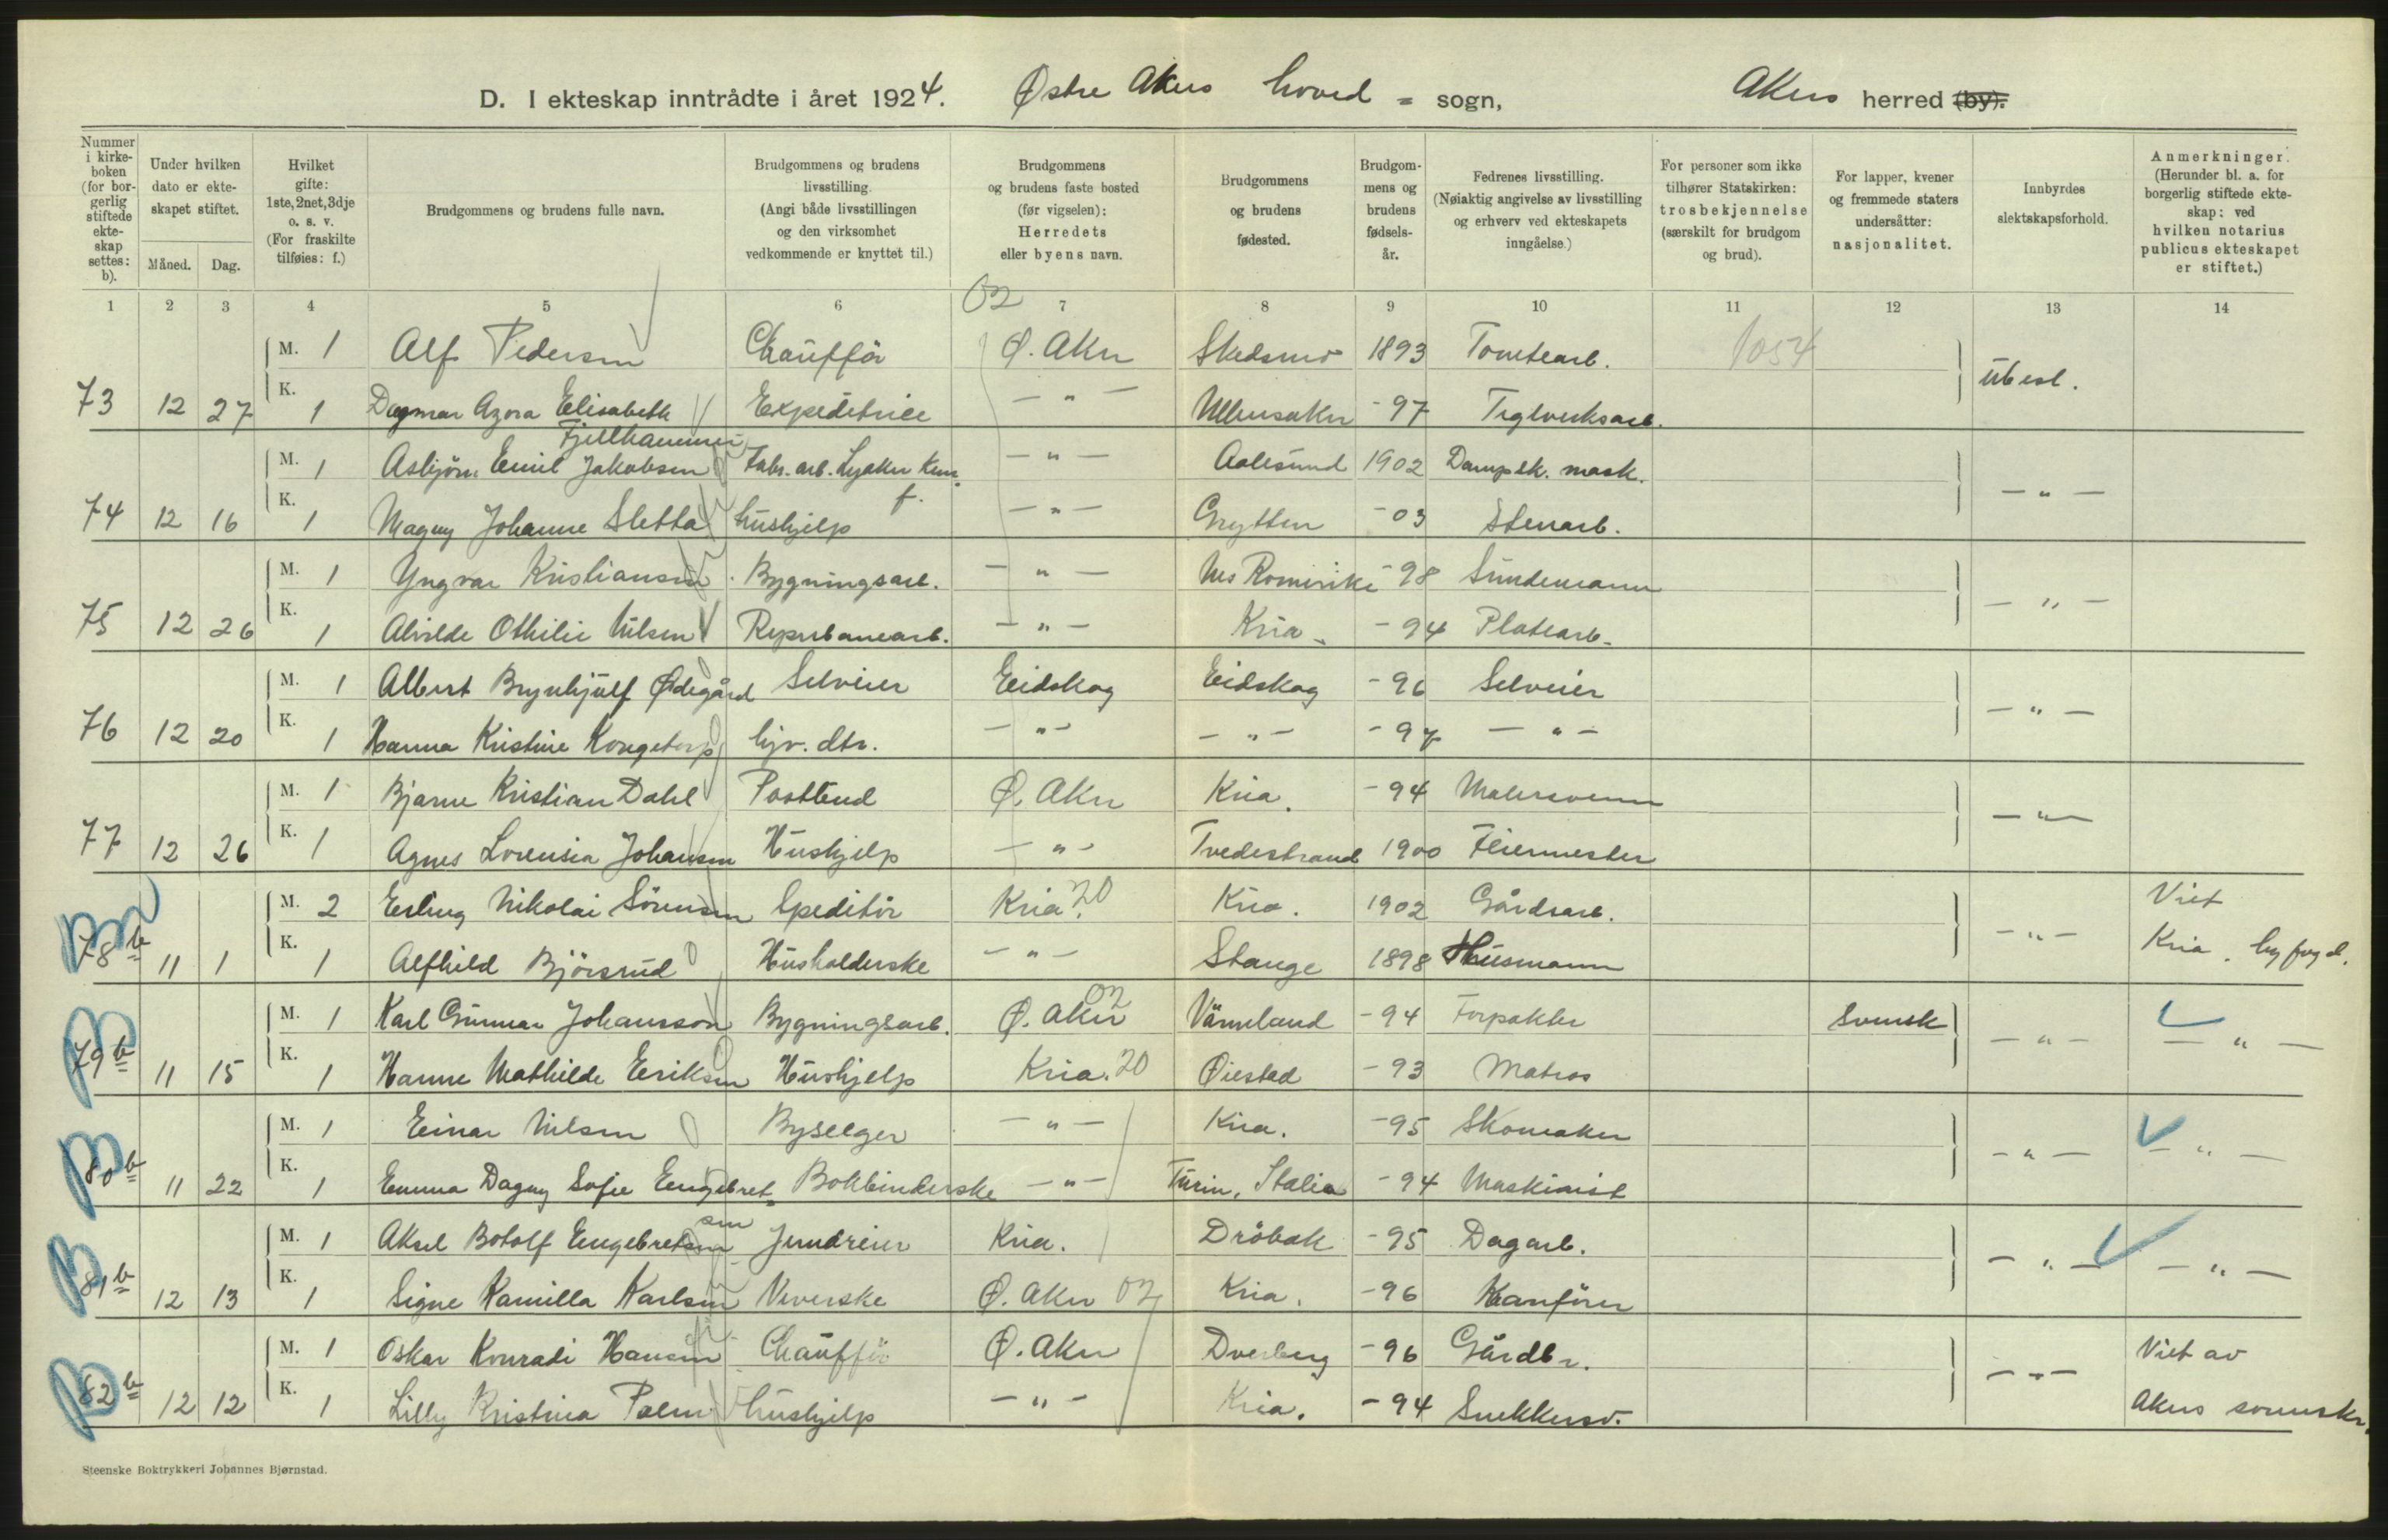 D. I ekteskap inntrådte i året 1924. Østre Akers hoved = sogn, Akers herred (by).
Nummer i kirkeboken (for borgerlig stiftede ekteskap settes: b).
Under hvilken dato er ekteskapet stiftet.
Måned. Dag.
Hvilket gifte: 1ste, 2net, 3dje o. s. v. (For fraskilte tilføies: f.)
Brudgommens og brudens fulle navn.
Brudgommens og brudens livsstilling. (Angi både livsstillingen og den virksomhet vedkommende er knyttet til.)
Brudgommens og brudens faste bosted (før vigselen): Herredets eller byens navn.
Brudgommens og brudens fødested.
Brudgommens og brudens fødselsår.
Fedrenes livsstilling. (Nøiaktig angivelse av livsstilling og erhverv ved ekteskapets inngåelse.)
For personer som ikke tilhører Statskirken: trosbekjennelse (særskilt for brudgom og brud).
For lapper, kvener og fremmede staters undersåtter: nasjonalitet.
Innbyrdes slektskapsforhold.
Anmerkninger. (Herunder bl. a. for borgerlig stiftede ekteskap: ved hvilken notarius publicus ekteskapet er stiftet.)
1 2 3 4 5 6 7 8 9 10 11 12 13 14
02
M. 1 Alf Pedersen Chaufför Ø. Aker Skedsmo 1893 Tomtearb. 1054
73 12 27 K. 1 Dagmar Azora Elisabeth Fjellhammer Expeditrice — " — Ullensaker -97 Teglverksarb. übesl.
M. 1 Asbjörn Emil Jakobsen Fabr. arb. Lysaker Kem. f. — " — Aalesund 1902 Dampsk. mask.
74 12 16 K. 1 Magny Johanne Sletta hushjelp — " — Grytten -03 Stenarb. — " —
M. 1 Yngvar Kristiansen Bygningsarb. — " — Nes Romerike -98 Sundemann
75 12 26 K. 1 Alvilde Othilie Nilsen Reperbanearb. — " — Kria. -94 Platearb. — " —
M. 1 Albert Brynhjulf Ødegård Selveier Eidskog Eidskog -96 Selveier
76 12 20 K. 1 Hanna Kristine Kongetorp hjv. dtr. — " — — " — -97 — " — — " —
M. 1 Bjarne Kristian Dahl Postbud Ø. Aker Kria. -94 Malersvenn
77 12 26 K. 1 Agnes Lorensia Johansen Hushjelp — " — Tvedestrand 1900 Feiermester — " —
M. 2 Erling Nikolai Sörensen Speditör Kria. 20 Kria. 1902 Gårdsarb. Viet
78 b 11 1 K. 1 Alfhild Björsrud Husholderske — " — Stange 1898 Husmann — " — Kria. byfogd.
M. 1 Karl Gunnar Johansson Bygningsarb. Ø. Aker 02 Värmland -94 Forpakter Svensk
79 b 11 15 K. 1 Hanne Mathilde Eriksen Hushjelp Kria. 20 Øiestad -93 Matros — " — — " —
M. 1 Einar Nilsen Byselger — " — Kria. -95 Skomaker
80 b 11 22 K. 1 Emma Dagny Sofie Engebretsen Bokbinderske — " — Turin, Italia -94 Maskinist — " — — " —
M. 1 Aksel Botolf Engebretsen Jerndreier Kria. Dröbak -95 Dagarb.
81 b 12 13 K. 1 Signe Kamilla Karlsen Veverske Ø. Aker 02 Kria. -96 Kranfører — " — — " —
M. 1 Oskar Konradi Hansen Chaufför Ø. Aker Dverberg -96 Gårdbr. Viet av
82 b 12 12 K. 1 Lilly Kristina Palm hushjelp — " — Kria. -94 Snekkersv. — " — Akers sorenskr.
Steenske Boktrykkeri Johannes Bjørnstad.